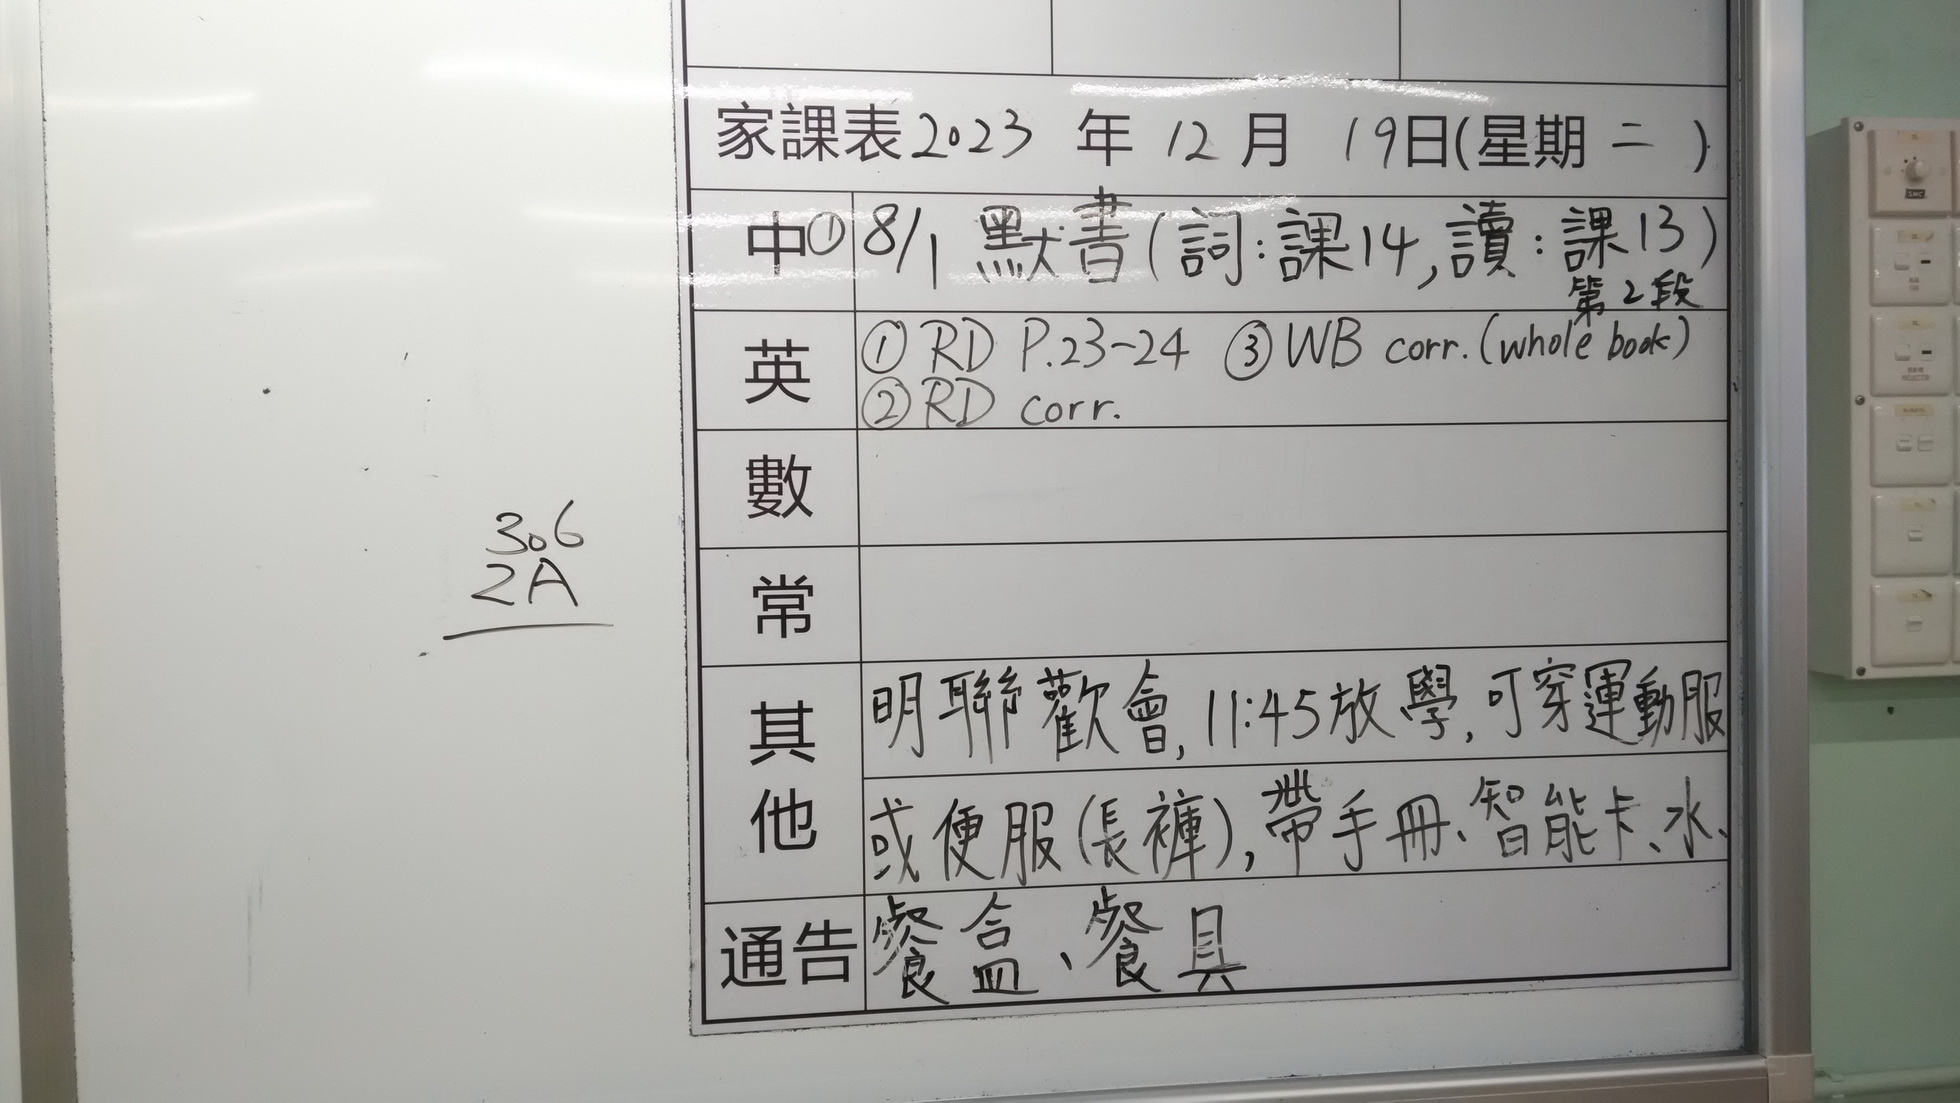 家課表 2023 年 12 月 19日(星期 二 )
中① 8/1 默書(詞:課14,讀:課13)
第2段
英 ① RD P.23-24 ③ WB corr. (whole book)
② RD corr.
數
常
306
2A
其他 明聯歡會,11:45放學,可穿運動服
或便服(長褲),帶手冊、智能卡、水、
通告 餐盒、餐具